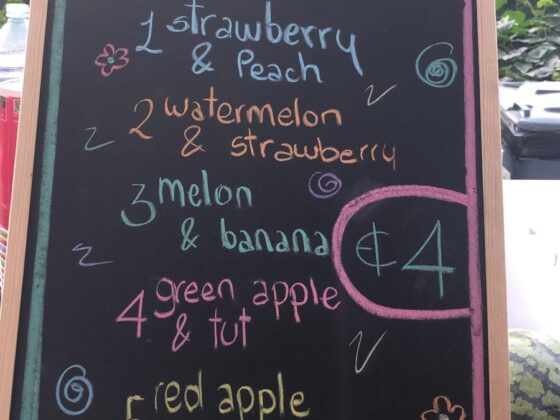 1 strawberry
& Peach
2 watermelon
& strawberry
3 melon
& banana
€4
4 green apple
& tut
5 red apple